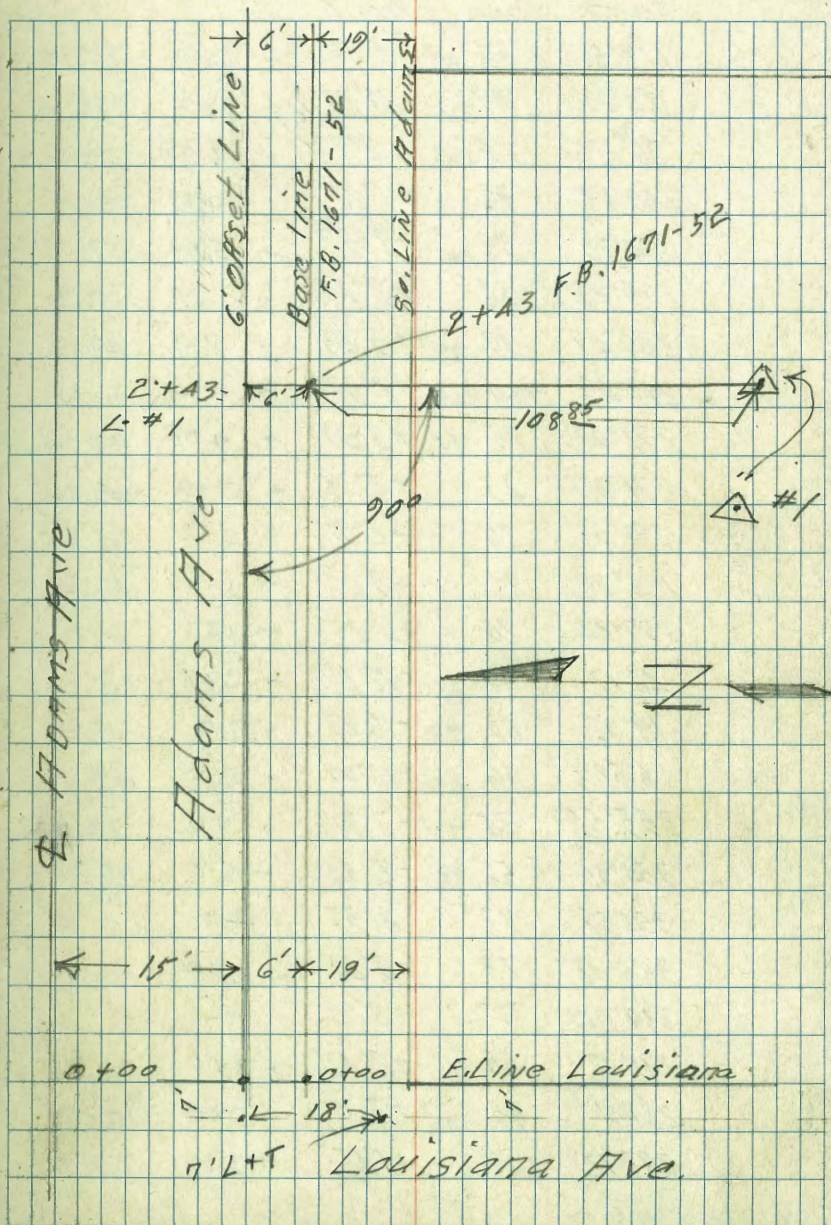 6' 19'
6' Offset Line
Base line
F.B. 1671-52
So. Line Adams
2+43 F.B. 1671-52
2+43=
L #1
6'
108 85
90°
#1
℄ ADAMS Ave
Adams Ave
N
15' 6' 19'
0+00 0+00 E. Line Louisiana
7' 18' 7'
7' L+T Louisiana Ave.